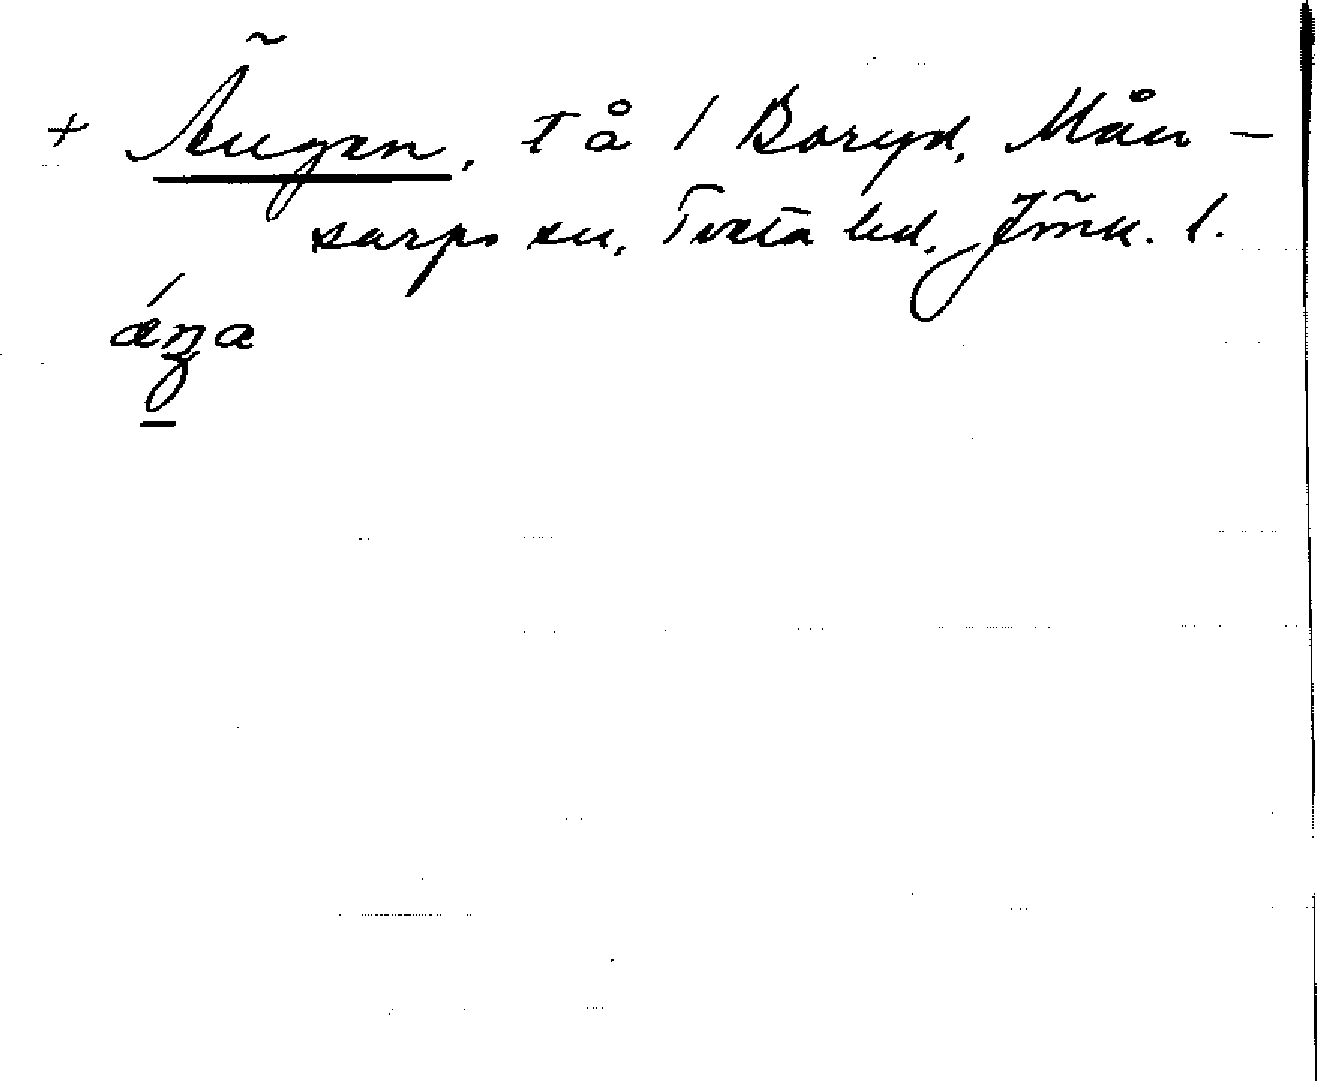 + Ängen, Tå i Boryd, Mån-
sarps sn, Tveta hd, Jmk. l.